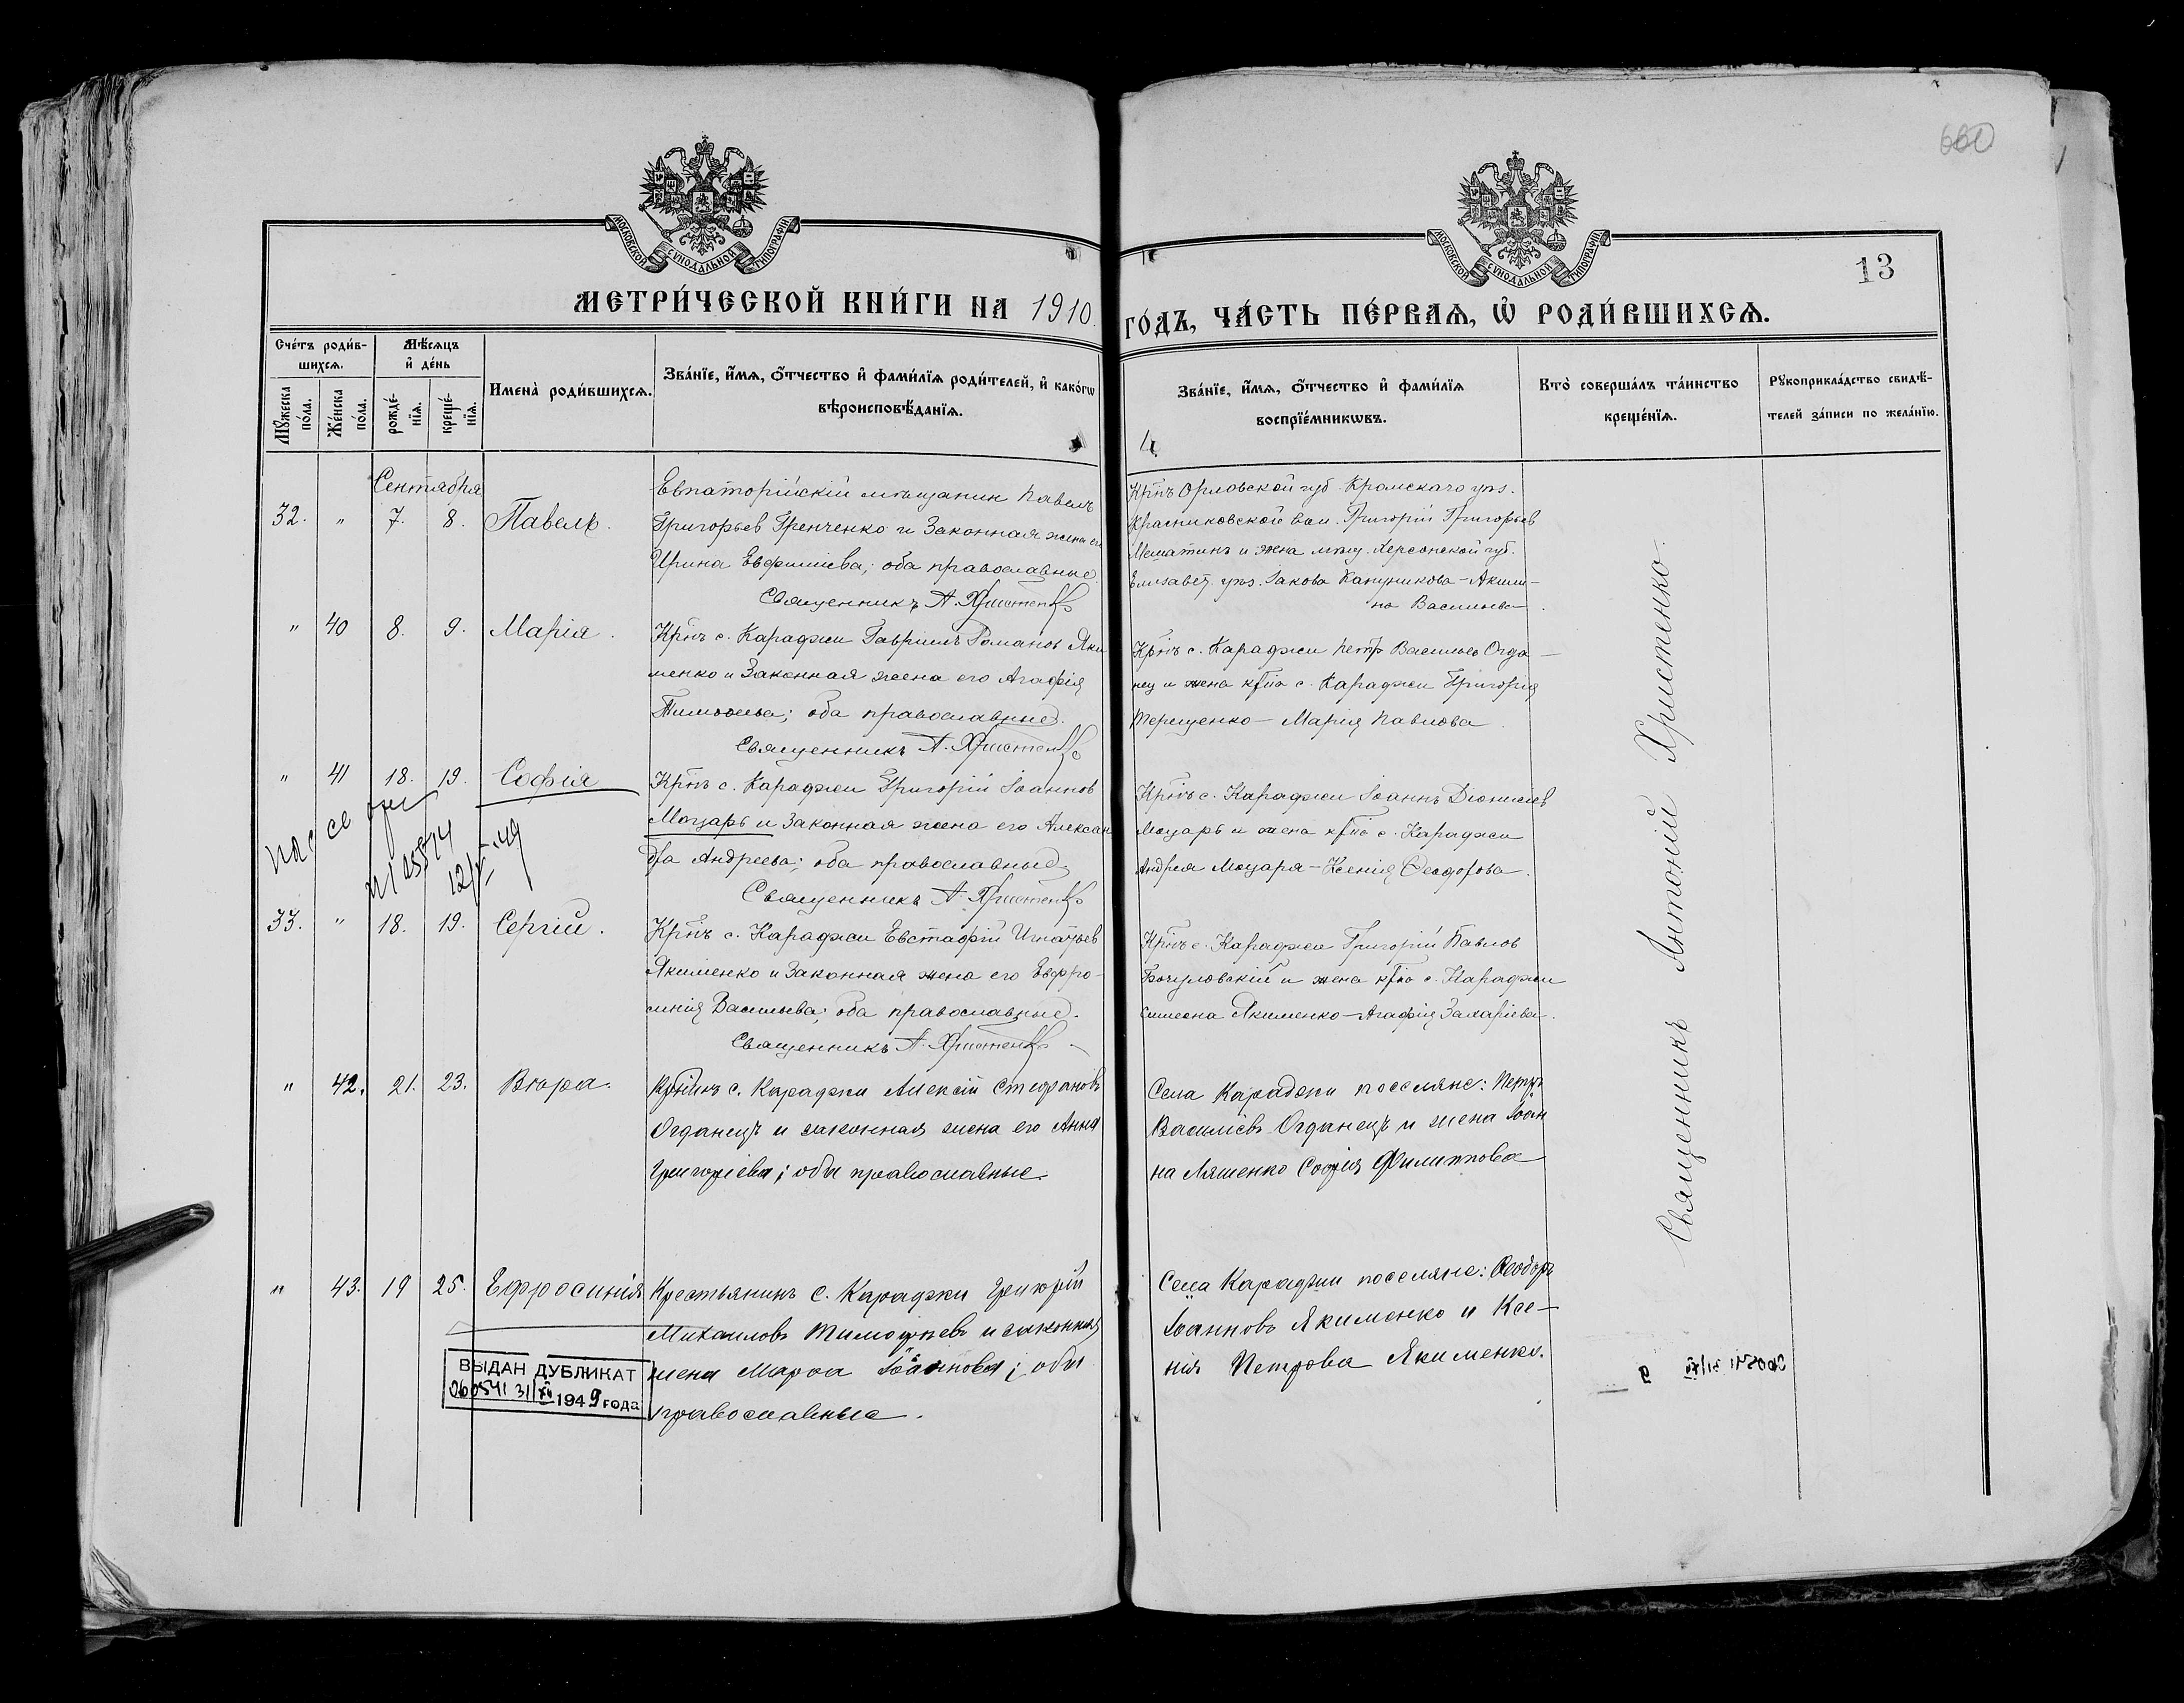 660
МОСКОВСКОЙ СѴНОДАЛЬНОЙ ТИПОГРАФІИ
МОСКОВСКОЙ СѴНОДАЛЬНОЙ ТИПОГРАФІИ
13
МЕТРИ́ЧЕСКОЙ КНИ́ГИ НА 1910.
ГО́ДЪ, ЧА́СТЬ ПЕ́РВАѦ, Ѡ҆ РОДИ́ВШИХСѦ.
Сче́тъ роди́в-
шихсѧ.
Мꙋжеска по́ла.
Же́нска по́ла.
Мѣ́сѧцъ
и҆ де́нь
рожде́-
нїѧ.
креще́-
нїѧ.
Имена̀ роди́вшихсѧ.
Зва́нїе, и҆́мѧ, ѻ҆́тчество и҆ фами́лїѧ роди́телей, и҆ како́гѡ
вѣроисповѣ́данїѧ.
Зва́нїе, и҆́мѧ, ѻ҆́тчество и҆ фами́лїѧ
воспрїе́мникѡвъ.
Кто̀ соверша́лъ та́инство
креще́нїѧ.
Рꙋкоприкла́дство свидѣ́-
телей за́писи по жела́нїю.
Сентября
32. " 7. 8. Павелъ.
Евпаторійскій мѣщанин Павелъ
Григорьев Гренченко и Законная жена его
Ирина Евфиміева; оба православные.
Священникъ А. Христенко
Крнъ Орловской губ. Кромскаго уѣз.
Красниковской вол. Григорій Григорьев
и жена мѣщ. Херсонской губ.
Елисавет. уѣз. Іакова Капуникова - Акили-
на Васильева.
" 40 8. 9. Марія.
Крнъ с. Караджи Гавріилъ Романов Яки
менко и Законная жена его Агафія
Тимоѳеева; оба православные.
Священникъ А. Христенко
Крнъ с. Караджи Петръ Васильев Огда-
нец и жена крна с. Караджи Григорія
Терещенко - Марія Павлова.
" 41 18. 19. Софія
Крнъ с. Караджи Григорій Іоаннов
Моцарь и Законная жена его Алексан
дра Андреева; оба православные.
Священникъ А. Христенко
Крнъ с. Караджи Іоаннъ Діонисіев
Моцарь и жена крна с. Караджи
Андрея Моцаря - Ксенія Ѳеодорова.
12/V-49
33. " 18. 19. Сергій.
Крнъ с. Караджи Евстафій Игнатьев
Якименко и Законная жена его Евфро-
синія Васильева; оба православные.
Священникъ А. Христенко
Крнъ с. Караджи Григорій Павлов
и жена крна с. Караджи
Симеона Якименко - Агафія Захаріева.
" 42. 21. 23. Вѣра.
с. Караджи Алексій Стефановъ
Огданецъ и законная жена его Анна
Григоріева; оба православные.
Села Караджи поселяне: Петръ
Василіевъ Огданецъ и жена Іоан
на Ляшенко Софія Филиппова
" 43. 19 25. Ефросинія
Крестьянинъ с. Караджи Григорій
Михаиловъ Тимоѳеевъ и законная
жена Марѳа Іоаннова; оба
православные.
Села Караджи поселяне: Ѳеодоръ
Іоанновъ Якименко и Ксе-
нія Петрова Якименко.
Священникъ Антоній Христенко.
ВЫДАН ДУБЛИКАТ
060541 31/XII 1949 года